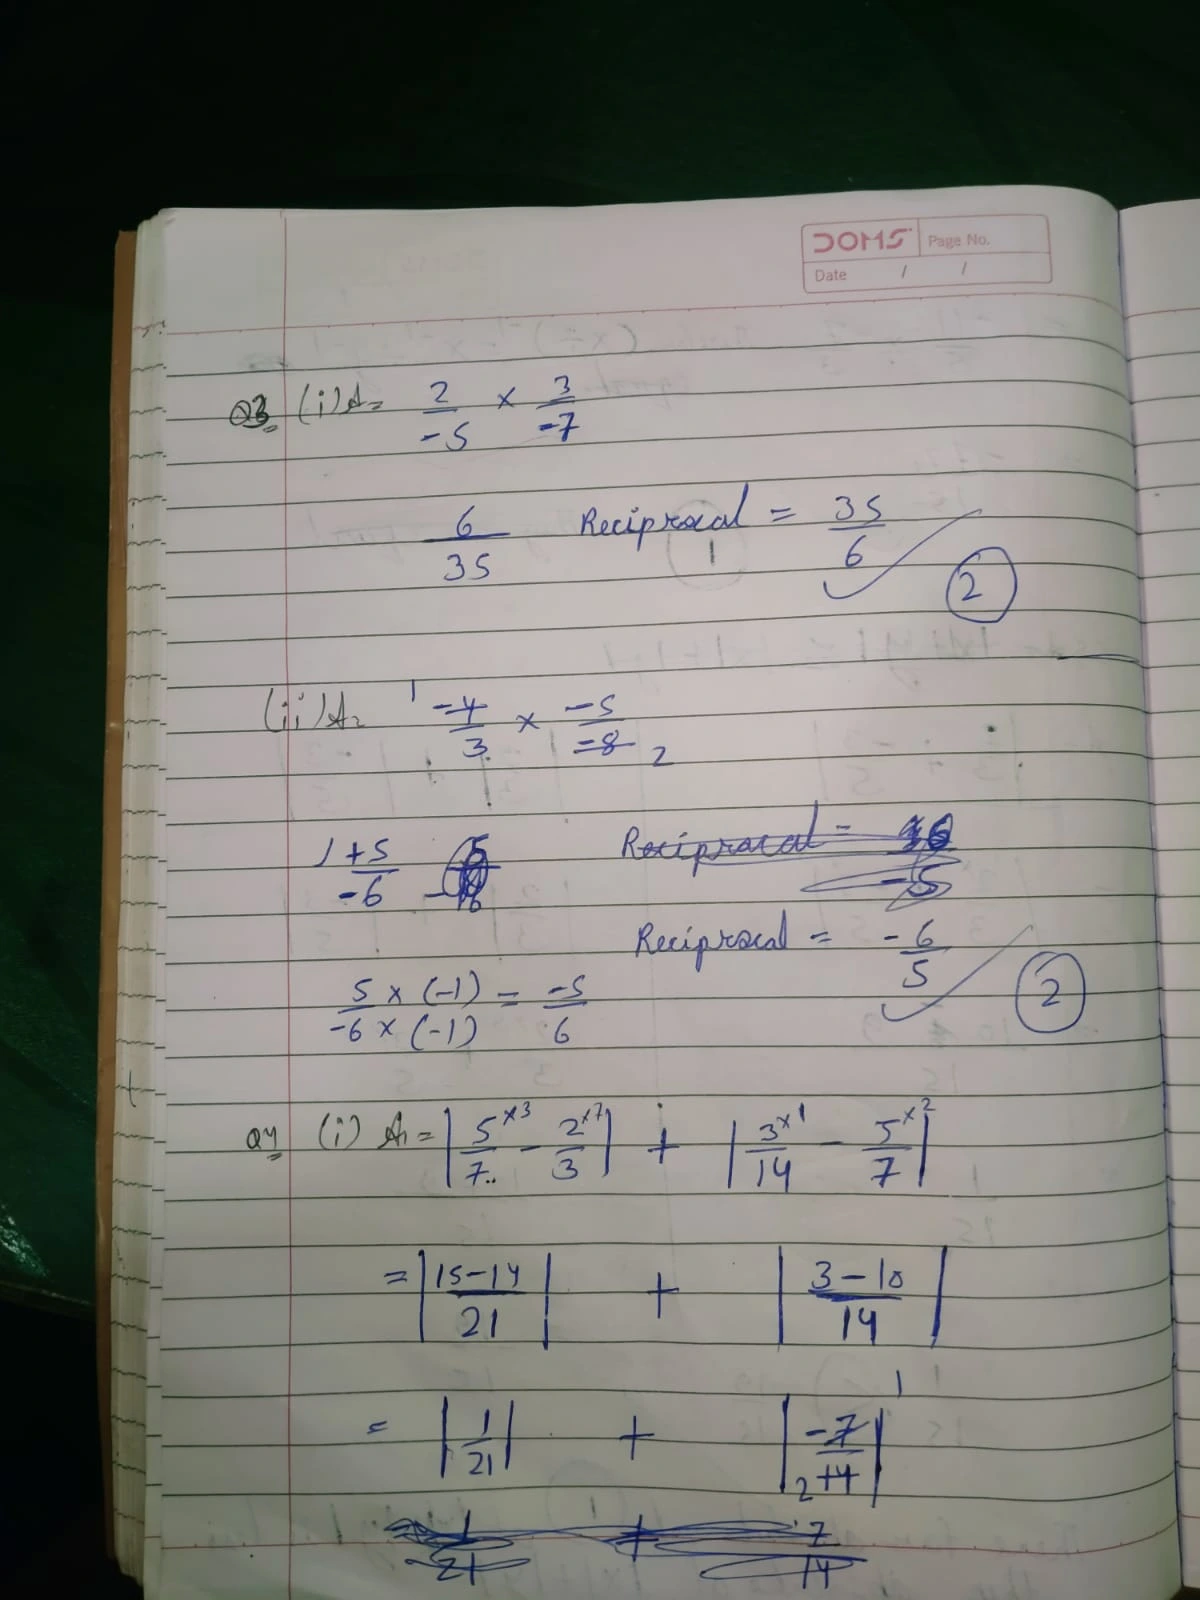 DOMS Page No.
Date / /
Q3 (i) A= 2/-5 × 3/-7
6/35 Reciprocal = 35/6
2
(ii) A= 1 -4/3 × -5/-8 2
1+5/-6
Reciprocal =
-5
Reciprocal = -6/5
2
5 × (-1)/-6 × (-1) = -5/6
Q4 (i) A= |5×3/7 - 2×7/3| + |3×1/14 - 5×2/7|
= |15-14/21| + |3-10/14|
= |1/21| + |-7/14| 1 2
1/21 + 7/14